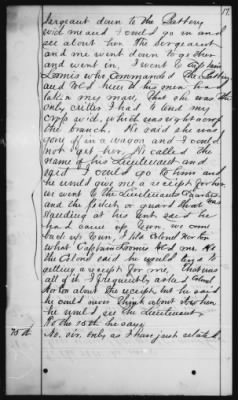 17.
Sergeant down to the Battery
wid me and I could go in and
see about her. The Sergeant
and me went down together
and went in. I went to Captain
Loomis who Commanded the Battery
and told him his men had
taken my mare, that she was the
only critter I had to tend my
crop wid, which was right across
the branch. He said she was
gone off in a wagon and I could
not get her. He called the
name of his Lieutenant and
said I could go to him and
he would give me a receipt for her.
we went to the Lieutenants Quarters
and the picket or guard that was
standing at his tent said he
had gone up town. We come
back up town. I told Colonel Norton
what Captain Loomis told me &
the Colonel said he would try &
getting a receipt for me. That was
all of it. I frequently asked Colonel
Norton about the receipt but he said
he could never think about it when
he would see the Lieutenant.
To the 75th he says:
75th No, sir, only as I have just stated.